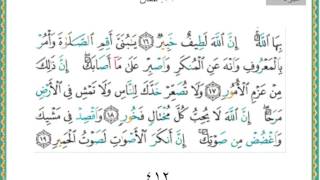 بِهَا ٱللَّهُ ۚ إِنَّ ٱللَّهَ لَطِيفٌ خَبِيرٌ ﴿١٦﴾ يَـٰبُنَىَّ أَقِمِ ٱلصَّلَوٰةَ وَأْمُرْ
بِٱلْمَعْرُوفِ وَٱنْهَ عَنِ ٱلْمُنكَرِ وَٱصْبِرْ عَلَىٰ مَآ أَصَابَكَ ۖ إِنَّ ذَٰلِكَ
مِنْ عَزْمِ ٱلْأُمُورِ ﴿١٧﴾ وَلَا تُصَعِّرْ خَدَّكَ لِلنَّاسِ وَلَا تَمْشِ فِى ٱلْأَرْضِ
مَرَحًا ۖ إِنَّ ٱللَّهَ لَا يُحِبُّ كُلَّ مُخْتَالٍ فَخُورٍ ﴿١٨﴾ وَٱقْصِدْ فِى مَشْيِكَ
وَٱغْضُضْ مِن صَوْتِكَ ۚ إِنَّ أَنكَرَ ٱلْأَصْوَٰتِ لَصَوْتُ ٱلْحَمِيرِ ﴿١٩﴾
٤١٢